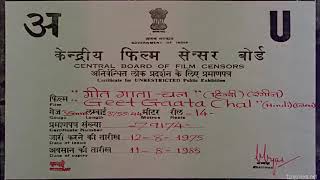 अ U
GOVERNMENT OF INDIA
केन्द्रीय फिल्म सेन्सर बोर्ड
CENTRAL BOARD OF FILM CENSORS
अनिर्बन्धित लोक प्रदर्शन के लिए प्रमाणपत्र
Certificate for UNRESTRICTED Public Exhibition
फिल्म "गीत गाता चल" (रंगीन)
Film "Geet Gaata Chal"
गेज 35mm लम्बाई मीटर रील -14-
Gauge Length Metres Reels
प्रमाणपत्र संख्या 79174
Certificate Number
जारी करने की तारीख 12-8-1975
Date of issue
अवसान की तारीख 11-8-1985
Date of expiry